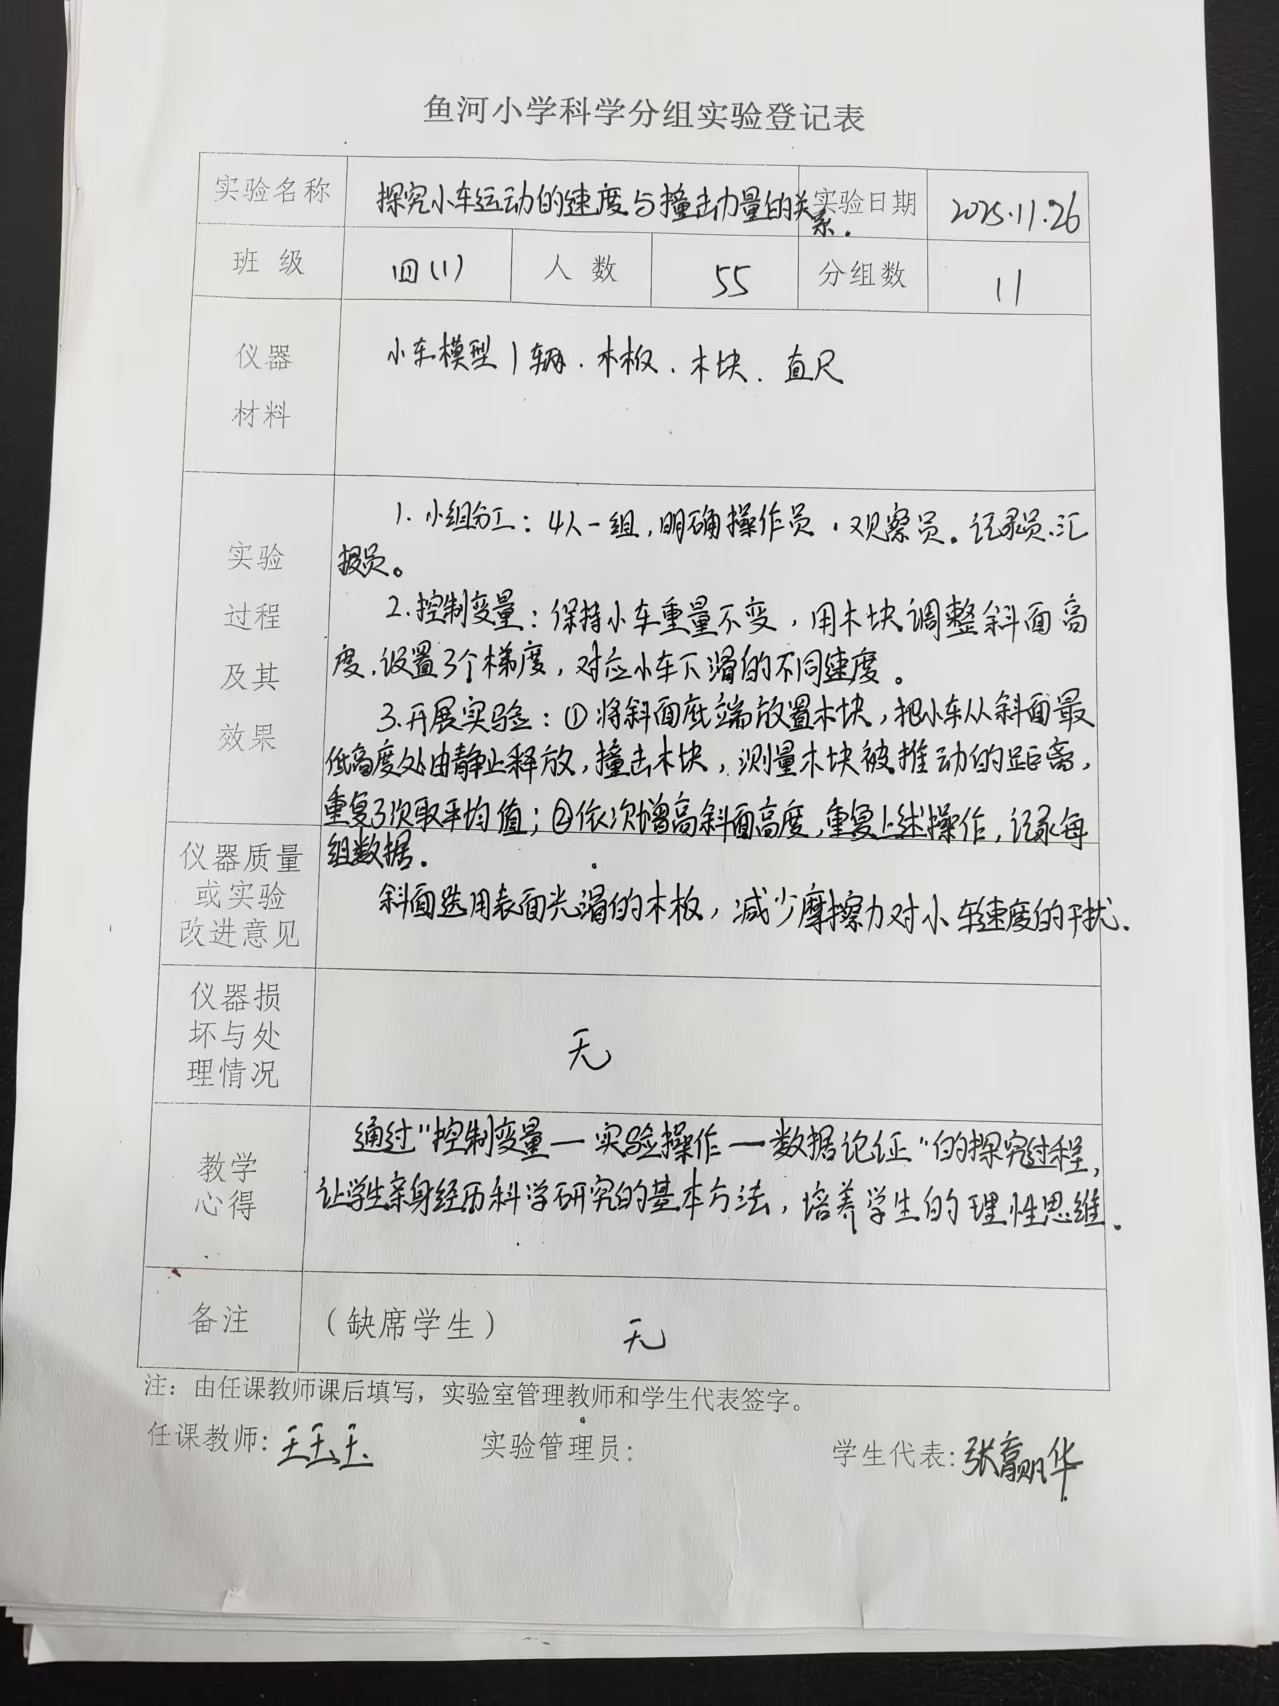 鱼河小学科学分组实验登记表
实验名称 探究小车运动的速度与撞击力量的关系. 实验日期 2025.11.26
班 级 四(1) 人 数 55 分组数 11
仪器
材料
小车模型1辆、木板、木块、直尺
实验
过程
及其
效果
1. 小组分工：4人一组,明确操作员、观察员。记录员、汇
报员。
2.控制变量：保持小车重量不变，用木块调整斜面高
度,设置3个梯度，对应小车下滑的不同速度。
3.开展实验：①将斜面底端放置木块，把小车从斜面最
低高度处由静止释放，撞击木块，测量木块被推动的距离，
重复3次取平均值；②依次增高斜面高度,重复上述操作，记录每
组数据.
仪器质量
或实验
改进意见
斜面选用表面光滑的木板，减少摩擦力对小车速度的干扰.
仪器损
坏与处
理情况
无
教学
心得
通过"控制变量—实验操作—数据论证"的探究过程，
让学生亲身经历科学研究的基本方法，培养学生的理性思维.
备注 （缺席学生） 无
注：由任课教师课后填写，实验室管理教师和学生代表签字。
任课教师: 王玉玉 实验管理员: 学生代表: 张赢华